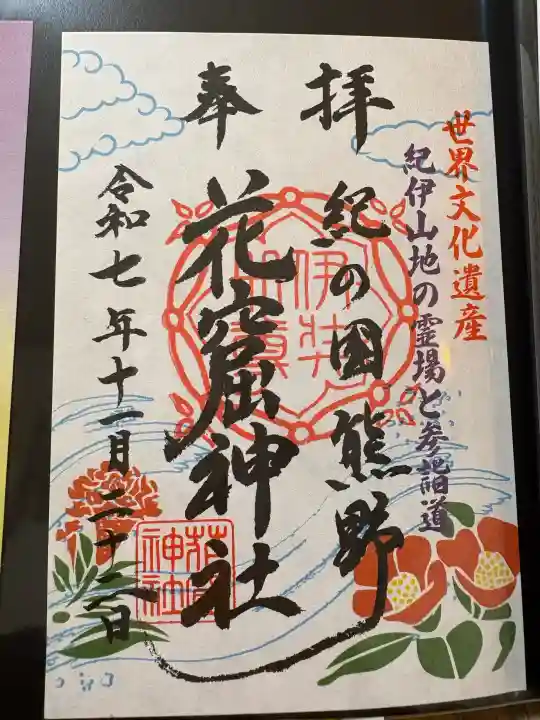 世界文化遺産
紀伊山地の霊場と参詣道
奉拝
紀の国熊野
花窟神社
令和七年十一月二十二日
花窟
神社